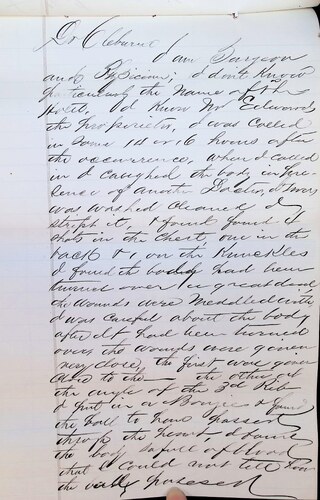 Dr Cleburne I am Surgeon
and Physician; I don't know
particularly the name of the
Hotel, I know Mr Edwards
the proprietor, I was called
in some 14 or 16 hours after
the occurrence, when I called
in I the body in pre-
sence of another Doctor, it
was washed cleaned I
stript it & found it
shots in the chest, one in the
back & 1, on the Knuckles
I found the body had been
turned over a great deal
the wounds were meddled with
I was careful about the body
after it had been turned
over the wounds were
very close, the first was
close to the the other at
the angle of the 3rd Rib
I put in a Bougie & found
the ball to have passed
through the heart, I found
the body so full of blood
that I could not tell how
the ball passed